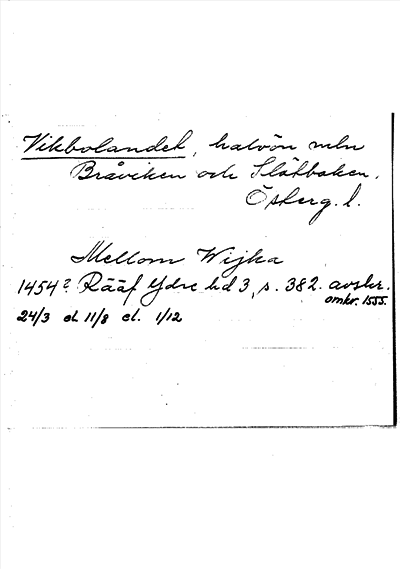 Vikbolandet, halvön mln
Bråviken och Slätbaken.
Österg. l.
Mellom Wijka
1454? Rääf Ydre bd 3, s. 382. avskr.
omkr. 1555.
24/3 el. 11/8 el. 1/12